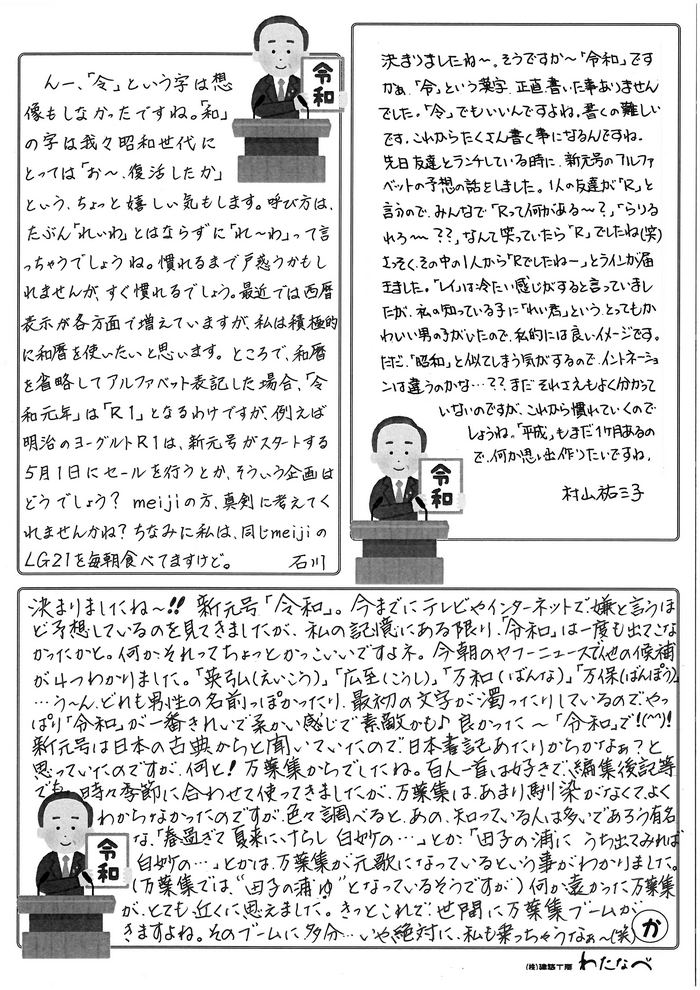 んー、「令」という字は想
像もしなかったですね。「和」
の字は我々昭和世代に
とっては「お〜、復活したか」
という、ちょっと嬉しい気もします。呼び方は、
たぶん「れいわ」とはならずに「れ〜わ」って言
っちゃうでしょうね。慣れるまで戸惑うかもし
れませんが、すぐ慣れるでしょう。最近では西暦
表示が各方面で増えていますが、私は積極的
に和暦を使いたいと思います。ところで、和暦
を省略してアルファベット表記した場合、「令
和元年」は「R1」となるわけですが、例えば
明治のヨーグルトR1は、新元号がスタートする
5月1日にセールを行うとか、そういう企画は
どうでしょう? meijiの方、真剣に考えてく
れませんかね?ちなみに私は、同じmeijiの
LG21を毎朝食べてますけど。 石川
令和
決まりましたね〜。そうですか〜「令和」です
かぁ、「令」という漢字、正直書いた事ありません
でした。「令」でもいいんですよね。書くの難しい
です、これからたくさん書く事になるんですね。
先日友達とランチしている時に、新元号のアルファ
ベットの予想の話をしました。1人の友達が「R」と
言うので、みんなで「Rって何がある〜?」「らりる
れろ〜??」なんて笑っていたら「R」でしたね(笑)
さっそく、その中の1人から「Rでしたねー」とラインが届
きました。「レイ」は冷たい感じがすると言っていまし
たが、私の知っている子に「れい君」という、とってもか
わいい男の子がいたので、私的には良いイメージです。
ただ、「昭和」と似てしまう気がするので、イントネーショ
ンは違うのかな…??まだそれさえもよく分かって
いないのですが、これから慣れていくので
しょうね。「平成」もまだ1ヶ月あるの
で、何か思い出作りたいですね。
村山祐三子
令和
決まりましたね〜!! 新元号「令和」。今までにテレビやインターネットで嫌と言うほ
ど予想しているのを見てきましたが、私の記憶にある限り、「令和」は一度も出てこな
かったかと。何か、それってちょっとかっこいいですよネ。今朝のヤフーニュースで他の候補
が4つわかりました。「英弘(えいこう)」「広至(こうし)」「万和(ばんな)」「万保(ばんぽう)」
…う〜ん、どれも男性の名前っぽかったり、最初の文字が濁ったりしているので、やっ
ぱり「令和」が一番きれいで柔かい感じで素敵かも♪良かった〜「令和」で!(^^)!
新元号は日本の古典からと聞いていたので日本書記あたりからかなぁ?と
思っていたのですが、何と!万葉集からでしたね。百人一首は好きで、編集後記等
でも、時々季節に合わせて使ってきましたが、万葉集は、あまり馴染がなくて、よく
わからなかったのですが、色々調べると、あの、知っている人は多いであろう有名
な、「春過ぎて夏来にけらし白妙の…」とか、「田子の浦に うち出てみれば
白妙の…」とかは、万葉集が元歌になっているという事がわかりました。
(万葉集では、“田子の浦ゆ”となっているそうですが)何か遠かった万葉集
が、とても近くに思えました。きっとこれで、世間に万葉集ブームが
きますよね。そのブームに多分…いや、絶対に、私も乗っちゃうなぁ〜(笑) か
令和
(株)建築工房 わたなべ